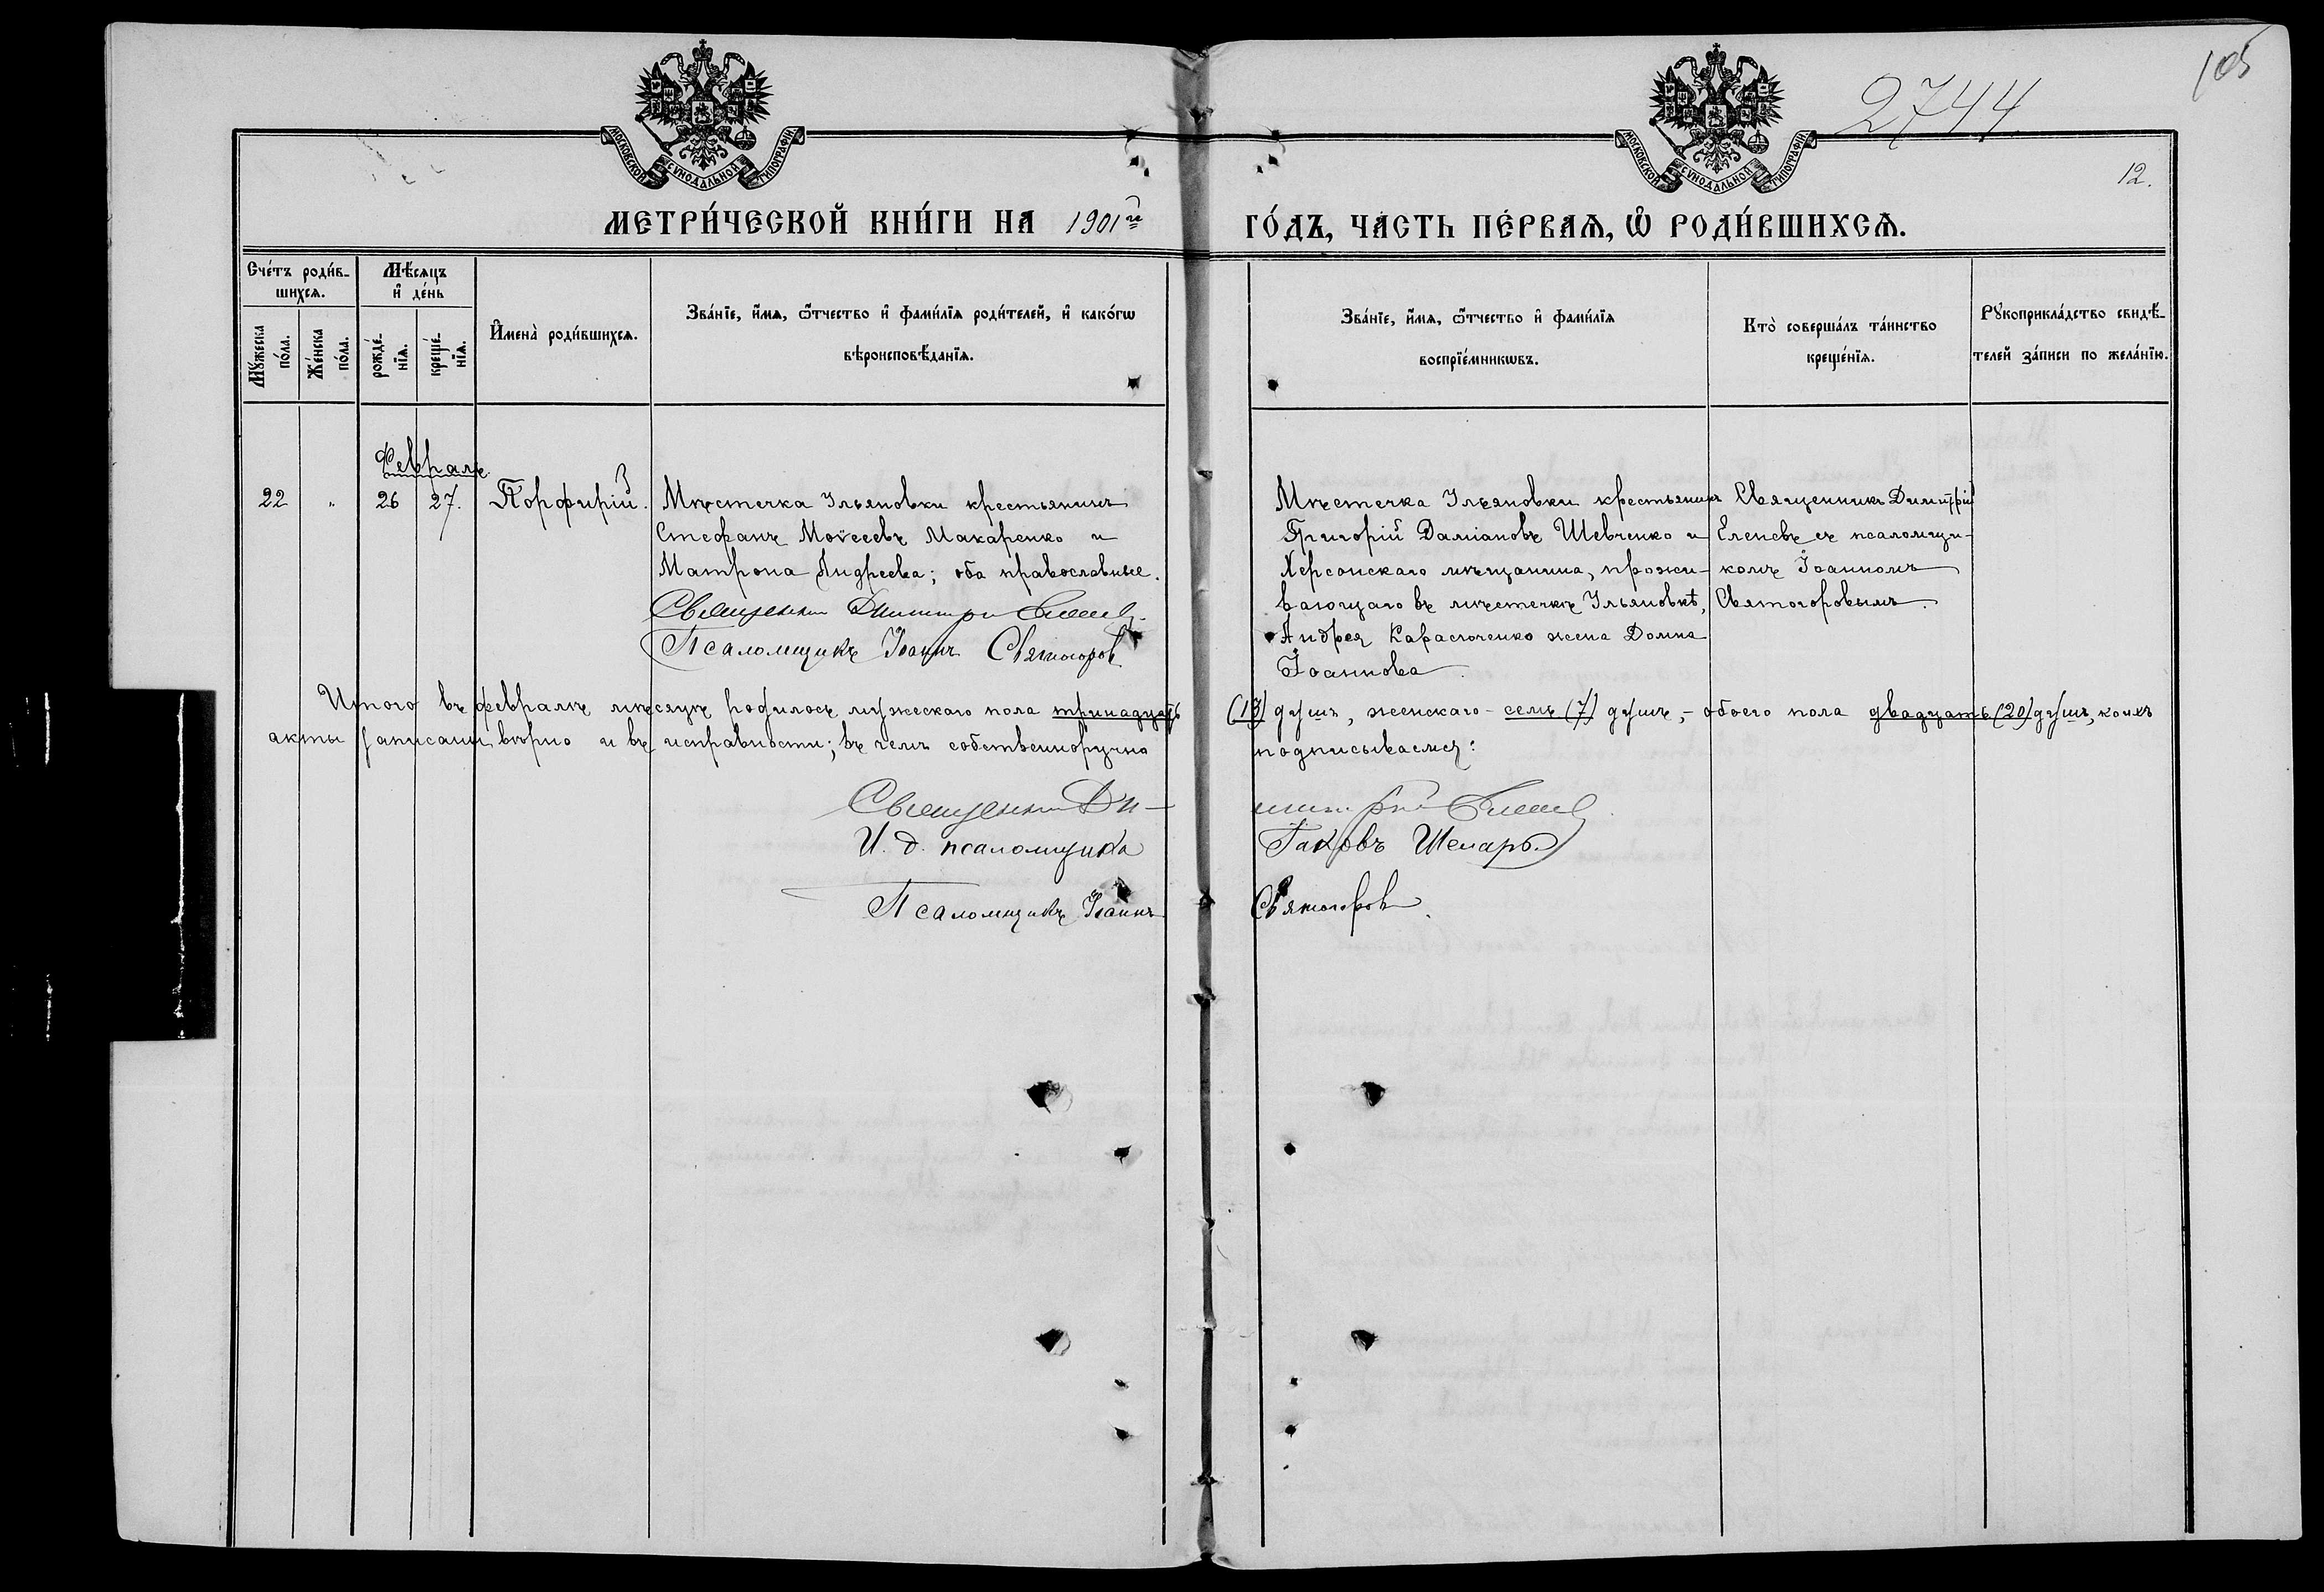 105
2744
МОСКОВСКОЙ СѴНОДАЛЬНОЙ ТИПОГРАФІИ
МОСКОВСКОЙ СѴНОДАЛЬНОЙ ТИПОГРАФІИ
12.
МЕТРИ́ЧЕСКОЙ КНИ́ГИ НА 1901й ГО́ДЪ, ЧА́СТЬ ПЕ́РВАѦ, Ѡ҆ РОДИ́ВШИХСѦ.
Сче́тъ роди́в-
шихсѧ.
Мѣ́сѧцъ
и҆ де́нь
Мꙋ́жеска
по́ла.
Же́нска
по́ла.
рожде́-
нїѧ.
креще́-
нїѧ.
И҆мена̀ роди́вшихсѧ.
Зва́нїе, и҆́мѧ, ѻ҆́тчество и҆ фами́лїѧ роди́телей, и҆ како́гѡ
вѣроисповѣ́данїѧ.
Зва́нїе, и҆́мѧ, ѻ҆́тчество и҆ фами́лїѧ
воспрїе́мникѡвъ.
Кто̀ соверша́лъ та́инство
креще́нїѧ.
Рꙋкоприкла́дство свидѣ́-
телей за́писи по жела́нїю.
Февраль
22 " 26 27. Порфирій.
Мѣстечка Ильяновки крестьянинъ
Стефанъ Моѵсеевъ Макаренко и
Матрона Андреева; оба православные.
Священникъ Димитрій Еленевъ
Псаломщикъ Іоаннъ Святогоровъ
Мѣстечка Ильяновки крестьянинъ
Григорій Даміановъ Шевченко и
Херсонскаго мѣщанина, прожи-
вающаго въ мѣстечкѣ Ильяновкѣ,
Андрея Карасюченко жена Домна
Іоаннова
Священникъ Димитрій
Еленевъ съ псаломщи-
комъ Іоанномъ
Святогоровымъ.
Итого въ февралѣ мѣсяцѣ родилось мужескаго пола тринадцать (13) душъ, женскаго - семь (7) душъ, - обоего пола двадцать (20) душъ, коихъ
акты записаны вѣрно и въ исправности; въ чемъ собственноручно подписываемся:
Священникъ Димитрій Еленевъ
И. д. псаломщика Іаковъ Шемаръ
Псаломщикъ Іоаннъ Святогоровъ